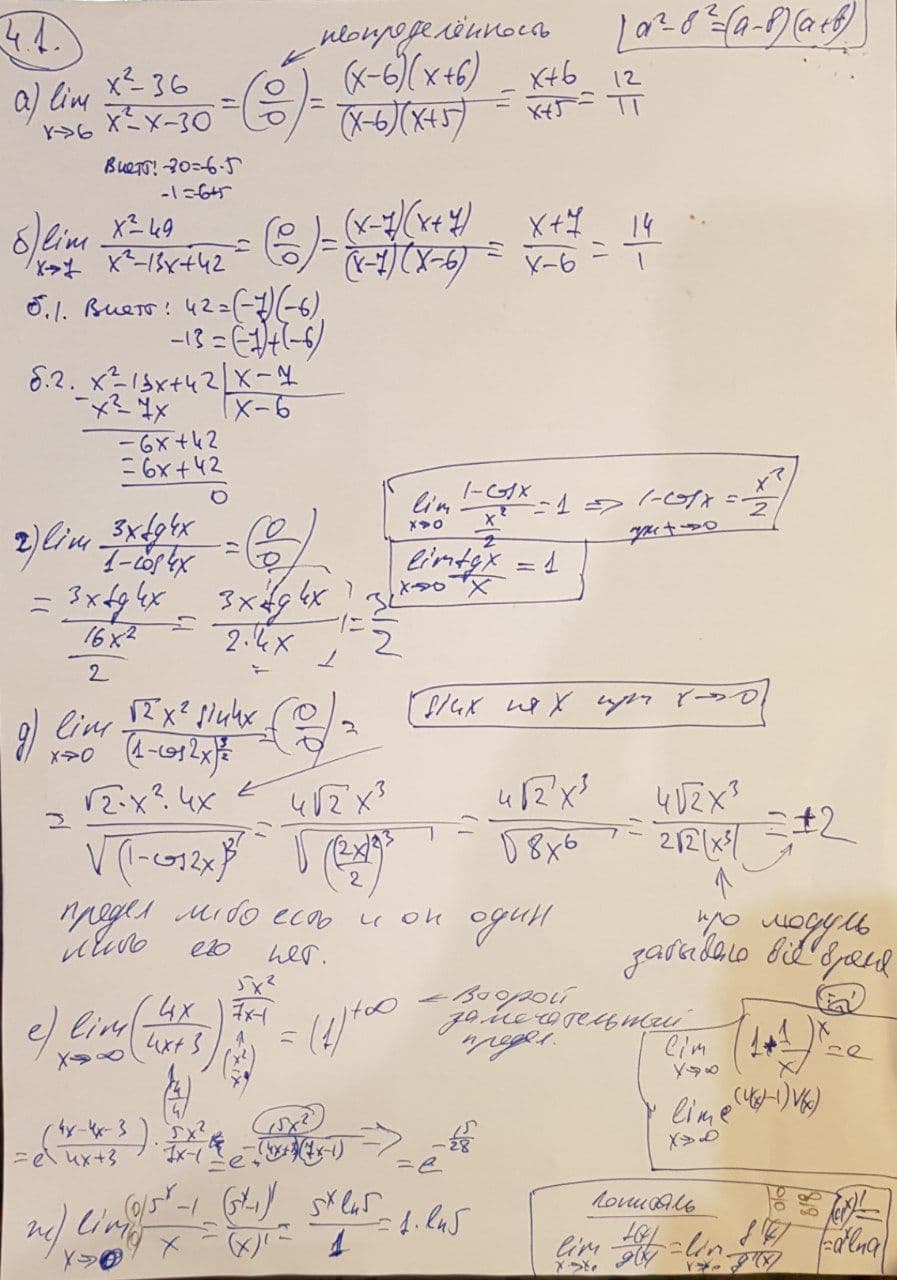 4.1.
неопределённость
a²-b²=(a-b)(a+b)
а) lim x→6 (x²-36)/(x²-x-30) = (0/0) = ((x-6)(x+6))/((x-6)(x+5)) = (x+6)/(x+5) = 12/11
Виетт: -30=-6·5
-1=-6+5
б) lim x→7 (x²-49)/(x²-13x+42) = (0/0) = ((x-7)(x+7))/((x-7)(x-6)) = (x+7)/(x-6) = 14/1
б.1. Виетт: 42=(-7)(-6)
-13=(-7)+(-6)
б.2. x²-13x+42 | x-7
- x²-7x | x-6
-6x+42
-6x+42
0
lim x→0 (1-cosx)/(x²/2) = 1 => 1-cosx = x²/2
при x→0
lim x→0 tgx/x = 1
г) lim (3x tg4x)/(1-cos4x) = (0/0)
= (3x tg4x)/(16x²/2) = (3x tg4x)/(2·4x) = 3/2
sinx на x при x→0
д) lim x→0 (√2 x² sin4x)/(1-cos2x)^(3/2) = (0/0) =
= (√2·x²·4x)/√((1-cos2x)³) = (4√2 x³)/√(((2x)²/2)³) = (4√2 x³)/√(8x⁶) = (4√2 x³)/(2√2|x³|) = ±2
предел либо есть и он один
либо его нет.
про модуль
забываю всё время
е) lim x→∞ (4x/(4x+3))^(5x²/(7x-1)) = (1)^(+∞)
(x²/x)
(4/4)
← Второй
замечательный
предел.
lim x→∞ (1+1/x)^x = e
lim x→∞ e^((U(x)-1)V(x))
= e^((4x-4x-3)/(4x+3) · 5x²/(7x-1)) = e^(-15x²/((4x+3)(7x-1))) => = e^(-15/28)
ж) lim x→0 (0/0) (5^x-1)/x = (5^x-1)'/(x)' = (5^x ln5)/1 = 1·ln5
Лопиталь
0/0 ∞/∞
lim x→x₀ f(x)/g(x) = lim x→x₀ f'(x)/g'(x)
(a^x)' =
= a^x ln a